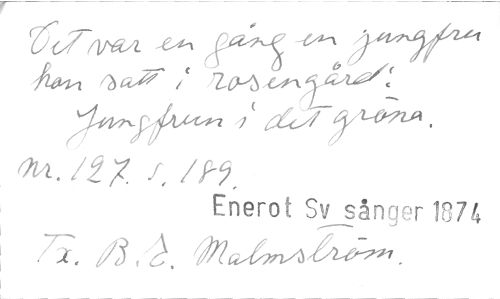 Det var en gång en jungfru
hon satt i rosengård:
Jungfrun i det gröna.
nr. 127. s. 189.
Enerot Sv sånger 1874
Tx. B. E. Malmström.